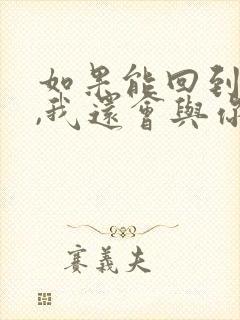 如果能回到
,我還會與你
賽義夫